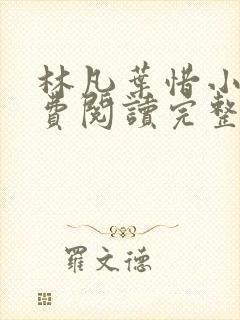 林凡葉惜小
費閱讀完整
羅文德